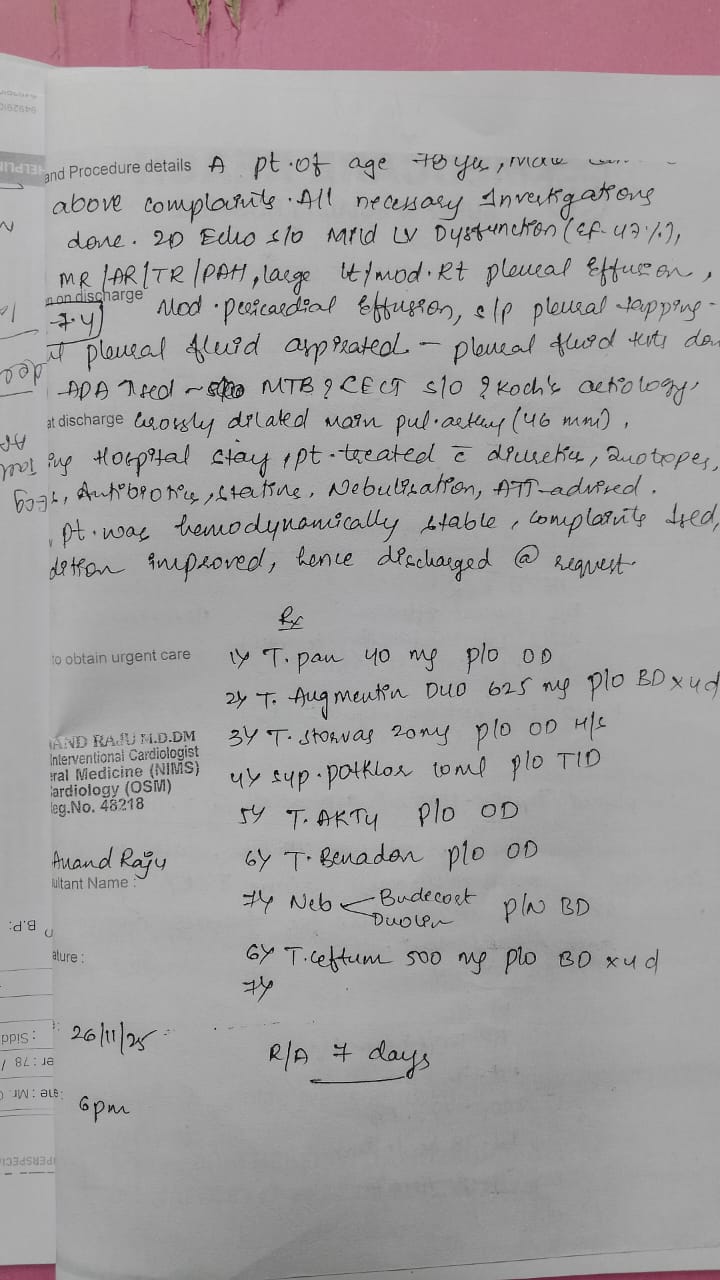 and Procedure details A pt. of age 78 yrs, male
above complaints. All necessary Investigations
done. 2D Echo s/o Mild LV Dysfunction (Ef-47%),
MR/AR/TR/PAH, large lt/mod. Rt pleural Effusion,
on discharge Mod. pericardial Effusion, s/p pleural tapping -
pleural fluid aspirated - pleural fluid tests don
ADA ↑sed ~ MTB ? CECT s/o ? Koch's aetiology,
at discharge Grossly dilated main pul. artery (46 mm),
ing Hospital stay, pt. treated c̄ diuretics, Inotopes,
Antibiotics, statins, Nebulisation, ATT-advised.
pt. was hemodynamically stable, complaints ↓sed,
dition improved, hence discharged @ request.
Rx
to obtain urgent care
1) T. pan 40 mg p/o OD
2) T. Augmentin DUO 625 mg p/o BD x 4d
3) T. storvas 20mg p/o OD H/S
AND RAJU M.D.DM
Interventional Cardiologist
eral Medicine (NIMS)
ardiology (OSM)
eg.No. 48218
4) syp. potklor 10ml p/o TID
5) T. AKT4 p/o OD
6) T. Benadon p/o OD
Anand Raju
ultant Name :
7) Neb Budecort
Duolin P/N BD
ature :
6) T. ceftum 500 mg p/o BD x 4d
7)
26/11/25
R/A 7 days
6pm
B.P: